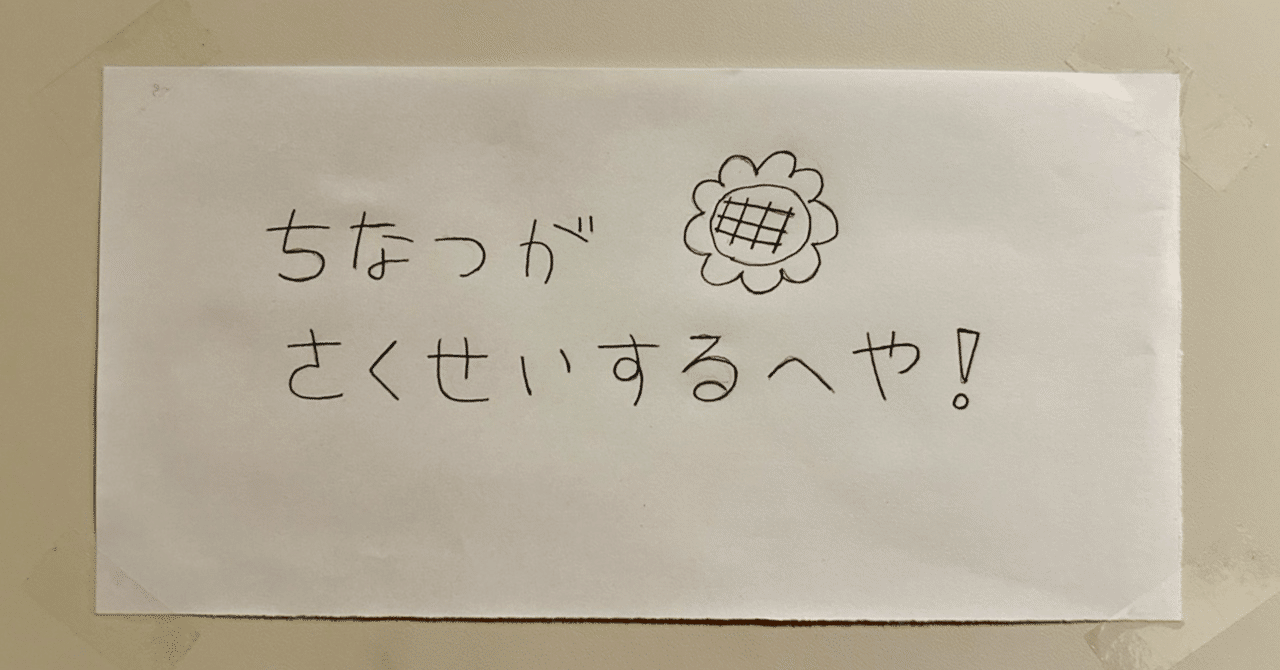 ちなつが
さくせいするへや!